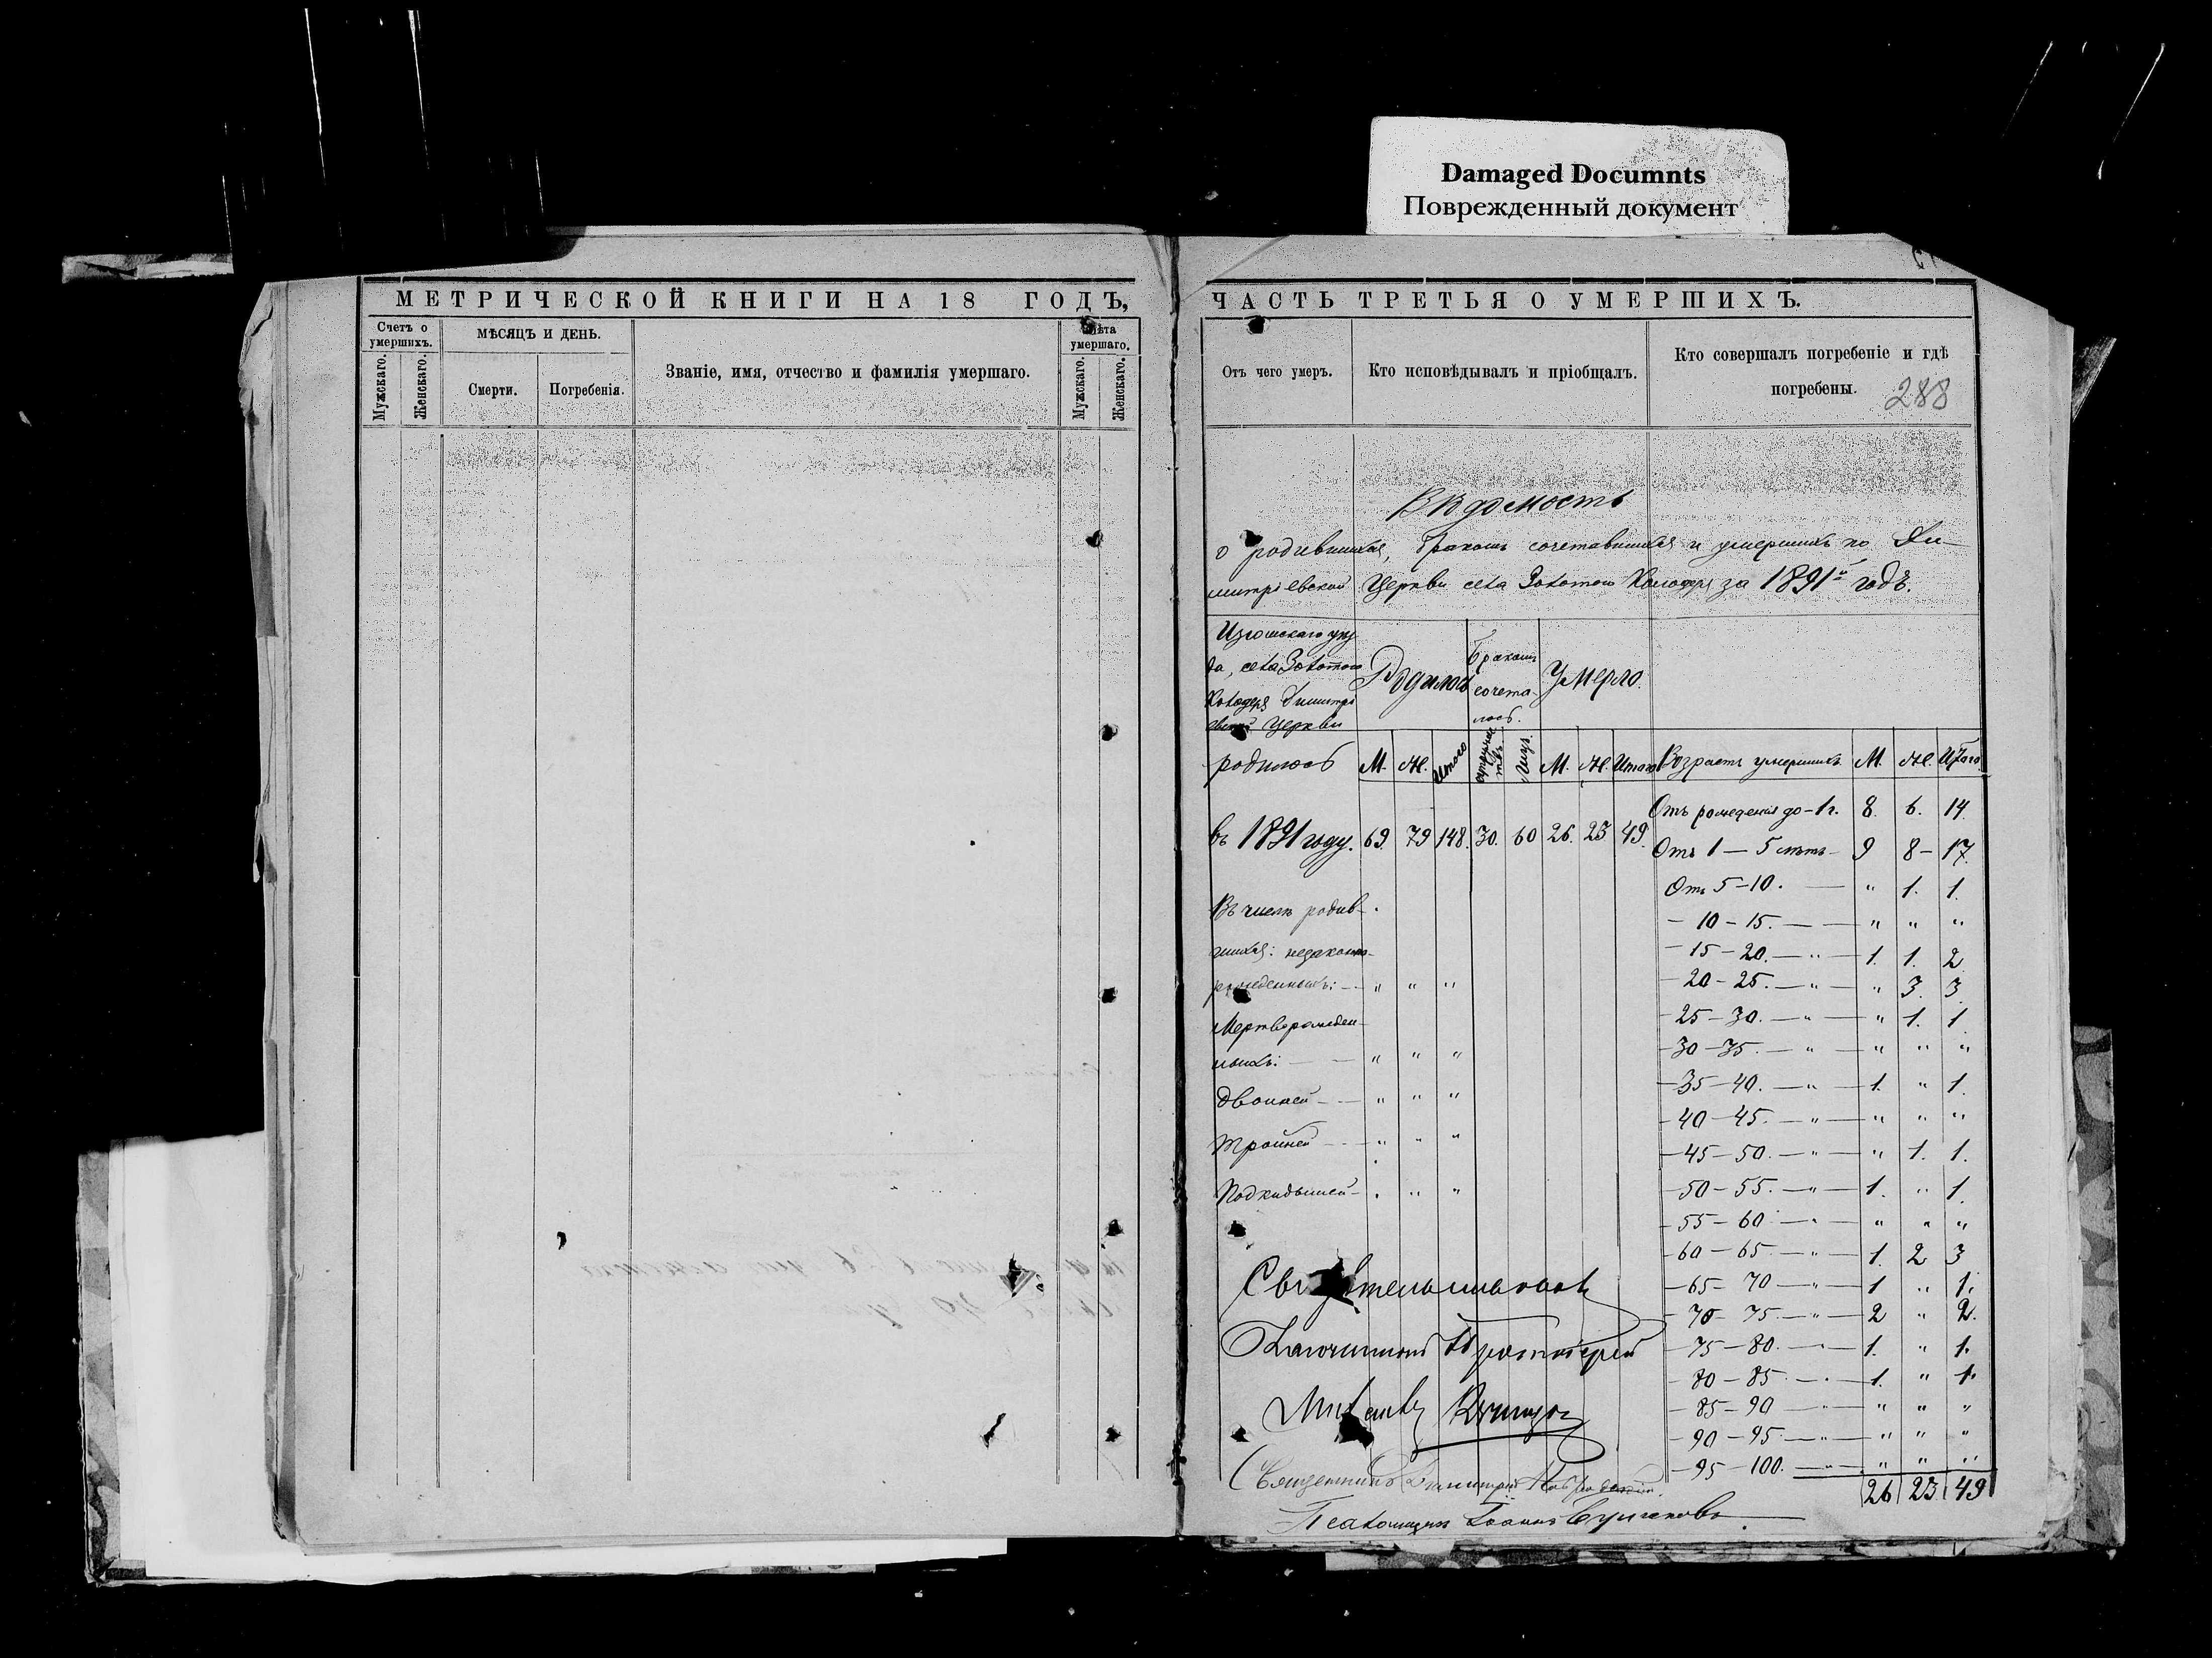 Damaged Documnts
Поврежденный документ
МЕТРИЧЕСКОЙ КНИГИ НА 18 ГОДЪ,
Счетъ о умершихъ.
МѢСЯЦЪ И ДЕНЬ.
Званіе, имя, отчество и фамилія умершаго.
Лѣта умершаго.
Мужскаго.
Женскаго.
Смерти.
Погребенія.
Мужскаго.
Женскаго.
ЧАСТЬ ТРЕТЬЯ О УМЕРШИХЪ.
Отъ чего умеръ.
Кто исповѣдывалъ и пріобщалъ.
Кто совершалъ погребеніе и гдѣ
погребены.
288
Вѣдомость
о родившихся, бракомъ сочетавшихся и умершихъ по Ди-
митріевской Церкви села Золотого Колодезя за 1891й годъ.
Изюмскаго уѣз
да, села Золотого
Колодезя Димитрі
евской Церкви
Родилось
Бракомъ
сочета-
лось.
Умерло.
родилось М. Ж. Итого супружествъ Лицъ. М. Ж. Итого Возрастъ умершихъ М. Ж. Итого
въ 1891 году. 69. 79 148. 30. 60 26. 23 49.
Отъ рожденія до - 1 г. 8. 6. 14.
Отъ 1 — 5 лѣтъ - 9 8 - 17.
Отъ 5 - 10. — " 1. 1.
- 10 - 15. — — " " "
- 15 - 20. — " — 1. 1. 2
- 20 - 25. — " — " 3. 3.
- 25 - 30. — " — " 1. 1
- 30 - 35. — " — " " "
- 35 - 40. — " — 1. " 1.
- 40 - 45. — " — " " "
- 45 - 50. — " — " 1. 1.
- 50 - 55. — " — 1. " 1.
- 55 - 60 — " — " " "
- 60 - 65. — " — 1. 2 3
- 65 - 70 — " — 1 " 1.
- 70 - 75. — " — 2 " 2.
- 75 - 80. — " — 1. " 1.
- 80 - 85. — " — 1. " 1.
- 85 - 90 — " — " " "
- 90 - 95. — " — " " "
- 95 - 100. — " — " " "
26 23 49
Въ числѣ родив-
шихся: незаконно-
рожденныхъ: — " " "
Мертворожден-
ныхъ: — — " " "
Двойней — — " " "
Тройней — — " " "
Подкидышей - " " "
Протоіерей
Священникъ Димитрій
Псаломщикъ Іоаннъ